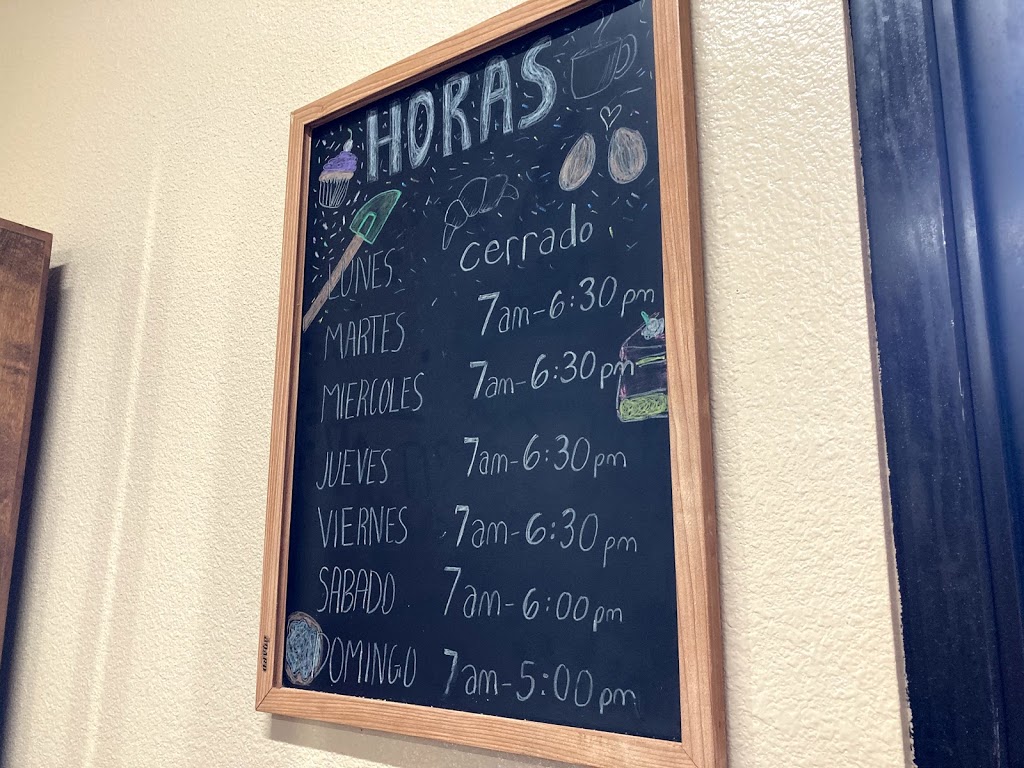 HORAS
LUNES cerrado
MARTES 7am-6:30pm
MIERCOLES 7am-6:30pm
JUEVES 7am-6:30pm
VIERNES 7am-6:30pm
SABADO 7am-6:00pm
DOMINGO 7am-5:00pm